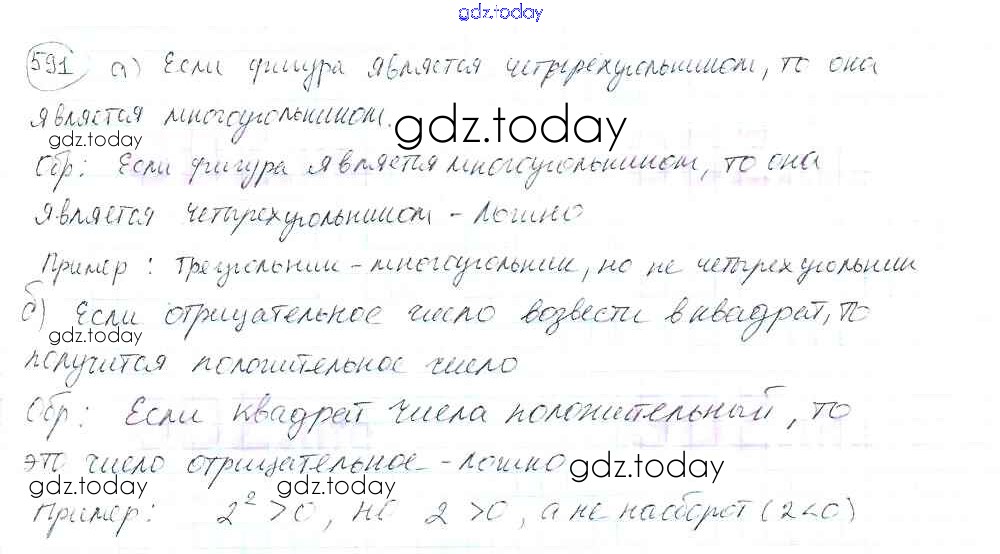 gdz.today
591 а) Если фигура является четырехугольником, то она
является многоугольником.
gdz.today
gdz.today
Обр: Если фигура является многоугольником, то она
gdz.today
является четырехугольником - ложно
Пример: треугольник - многоугольник, но не четырехугольник
б) Если отрицательное число возвести в квадрат, то
gdz.today
получится положительное число
Обр: Если квадрат числа положительный, то
это число отрицательное - ложно
gdz.today
gdz.today
gdz.today
gdz.today
Пример: 2² > 0, но 2 > 0, а не наоборот (2 < 0)